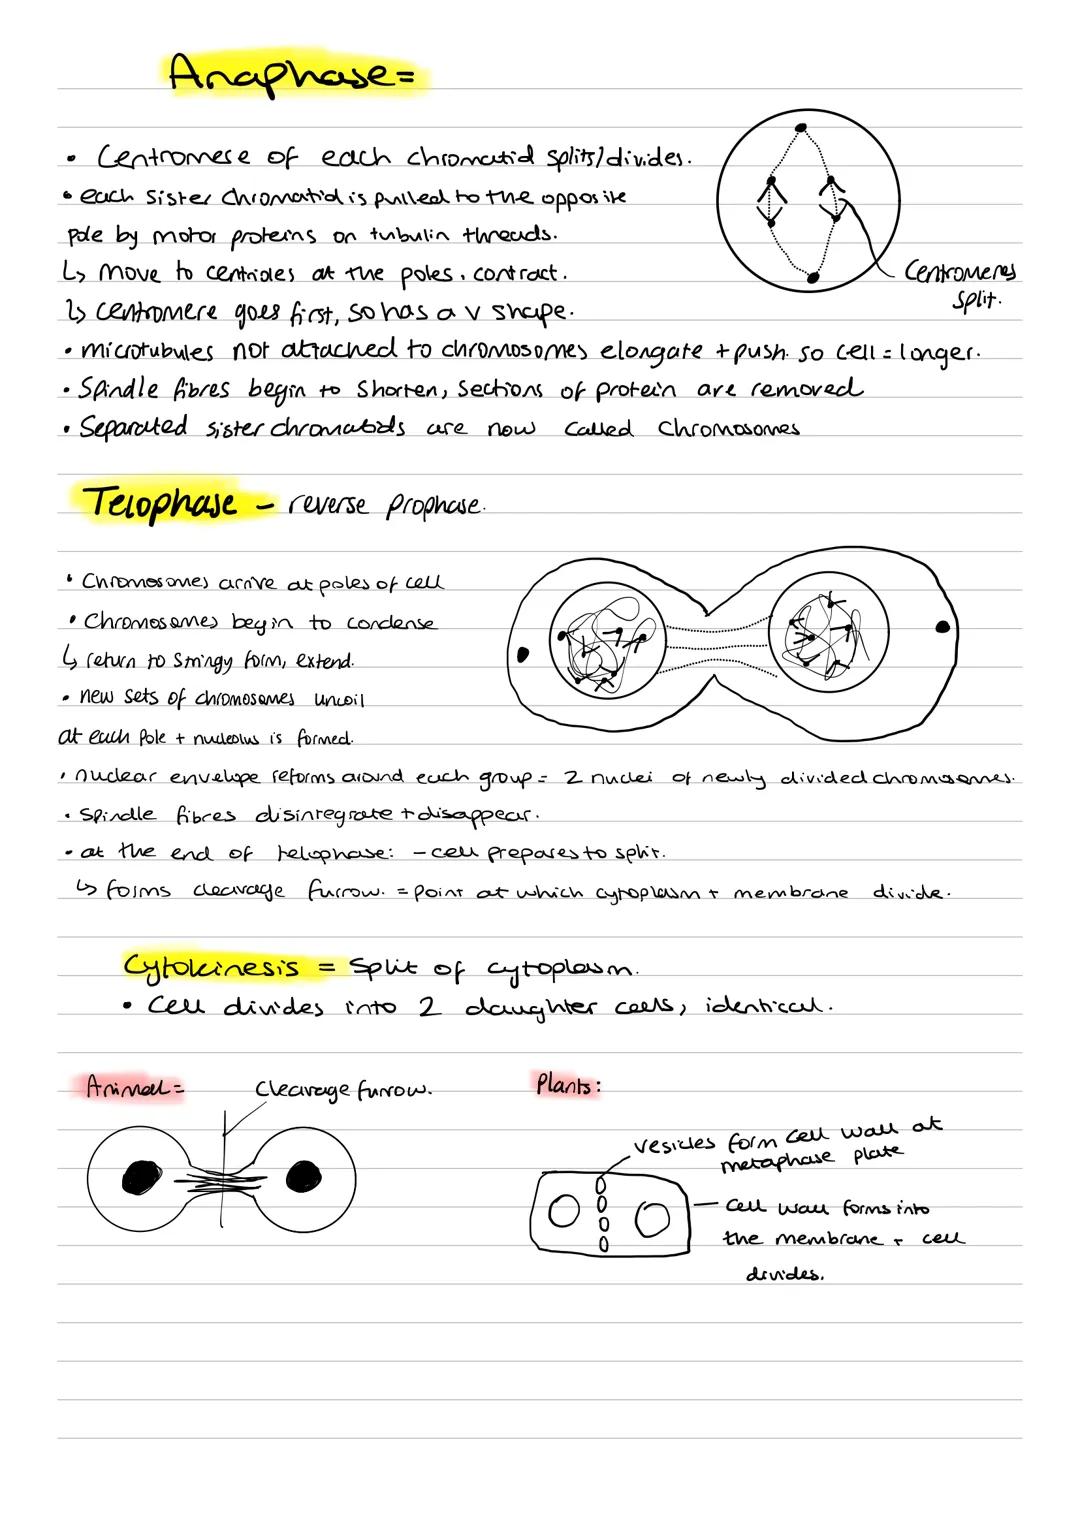 Anaphase =
• Centromere of each chromatid splits/divides.
• each sister chromatid is pulled to the opposite
pole by motor proteins on tubulin threads.
↳ move to centrioles at the poles, contract.
↳ centromere goes first, so has a v shape.
Centromeres
split.
• microtubules not attached to chromosomes elongate + push. so cell = longer.
• Spindle fibres begin to shorten, sections of protein are removed
• Separated sister chromatids are now called Chromosomes
Telophase - reverse prophase.
• Chromosomes arrive at poles of cell
• Chromosomes begin to condense
↳ return to stringy form, extend.
• new sets of chromosomes uncoil
at each pole + nucleolus is formed.
• nuclear envelope reforms around each group = 2 nuclei of newly divided chromosomes.
• spindle fibres disintegrate + disappear.
• at the end of telophase: - cell prepares to split.
↳ forms cleavage furrow. = point at which cytoplasm + membrane divide.
Cytokinesis = split of cytoplasm.
• Cell divides into 2 daughter cells, identical.
Animal =
Cleavage furrow.
Plants:
vesicles form cell wall at
metaphase plate
- Cell wall forms into
the membrane + cell
divides.